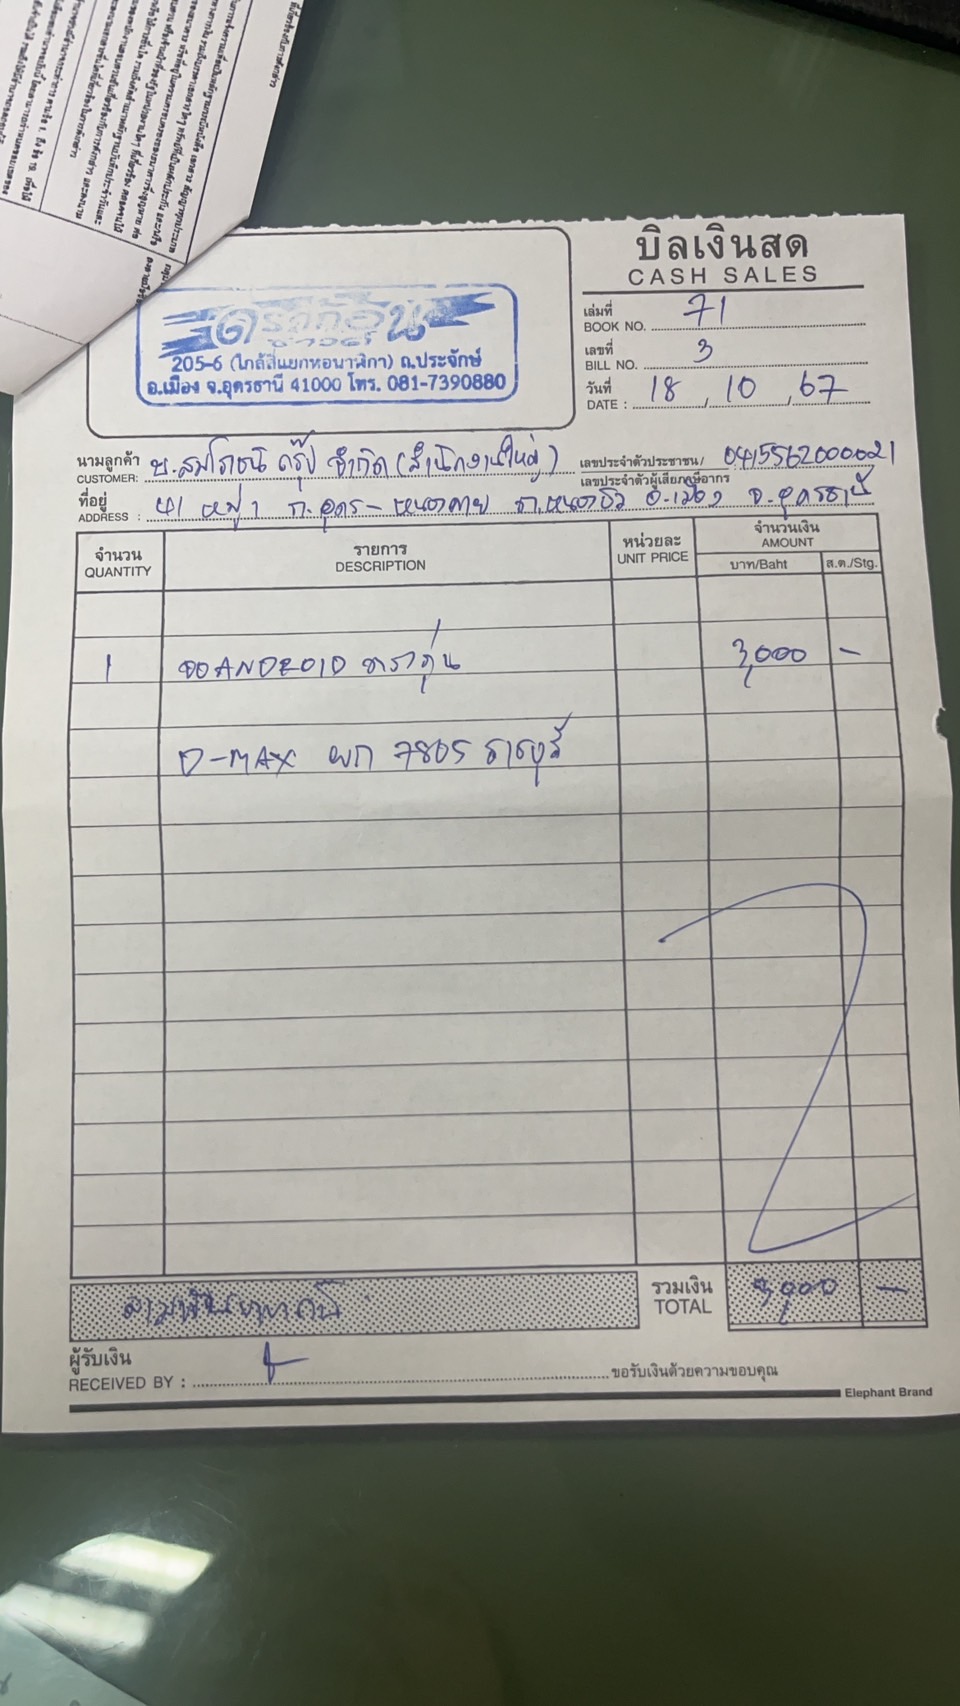 บิลเงินสด
CASH SALES
เล่มที่
BOOK NO. 71
เลขที่
BILL NO. 3
วันที่
DATE : 18, 10, 67
205-6 (ใกล้สี่แยกหอนาฬิกา) ถ.ประจักษ์
อ.เมือง จ.อุดรธานี 41000 โทร. 081-7390880
นามลูกค้า
CUSTOMER: บ. กรุ๊ป จำกัด (สำนักงานใหญ่)
เลขประจำตัวประชาชน/
เลขประจำตัวผู้เสียภาษีอากร 0415562000021
ที่อยู่
ADDRESS : หมู่ 1 ถ.อุดร-หนองคาย อ.เมือง จ.อุดรธานี
จำนวน
QUANTITY
รายการ
DESCRIPTION
หน่วยละ
UNIT PRICE
จำนวนเงิน
AMOUNT
บาท/Baht
ส.ต./Stg.
1 จอ ANDROID ตรงรุ่น 3,000 -
D-MAX ผก 7805 ราชบุรี
สามพันบาทถ้วน
รวมเงิน
TOTAL
3,000 -
ผู้รับเงิน
RECEIVED BY :
ขอรับเงินด้วยความขอบคุณ
Elephant Brand